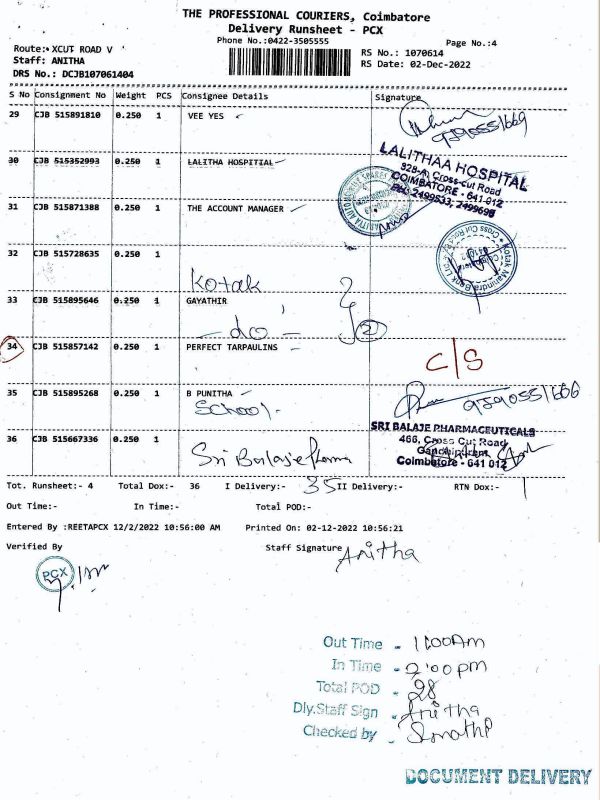 THE PROFESSIONAL COURIERS, Coimbatore
Delivery Runsheet - PCX
Phone No.:0422-3505555
Page No.:4
Route:- XCUT ROAD V
Staff: ANITHA
DRS No.: DCJB107061404
RS No.: 1070614
RS Date: 02-Dec-2022
S No Consignment No Weight PCS Consignee Details Signature
29 CJB 515891810 0.250 1 VEE YES
9590551669
30 CJB 515352993 0.250 1 LALITHA HOSPITIAL
LALITHAA HOSPITAL
328-A, Cross-cut Road
COIMBATORE - 641 012
PH: 2499533, 2499695
31 CJB 515871388 0.250 1 THE ACCOUNT MANAGER
32 CJB 515728635 0.250 1
Kotak
Kotak Mahindra Bank Ltd
33 CJB 515895646 0.250 1 GAYATHIR
- do - 2
34 CJB 515857142 0.250 1 PERFECT TARPAULINS
C/S
35 CJB 515895268 0.250 1 B PUNITHA
School.
36 CJB 515667336 0.250 1
Sri Balaje Pharma
SRI BALAJE PHARMACEUTICALS
466, Cross Cut Road
Gandhipuram
Coimbatore - 641 012
Tot. Runsheet:- 4 Total Dox:- 36 I Delivery:- 35 II Delivery:- RTN Dox:- 1
Out Time:- In Time:- Total POD:-
Entered By :REETAPCX 12/2/2022 10:56:00 AM Printed On: 02-12-2022 10:56:21
Verified By
Staff Signature Anitha
PCX
Out Time - 11:00Am
In Time - 2:00pm
Total POD - 28
Dly.Staff Sign - Anitha
Checked by -
DOCUMENT DELIVERY